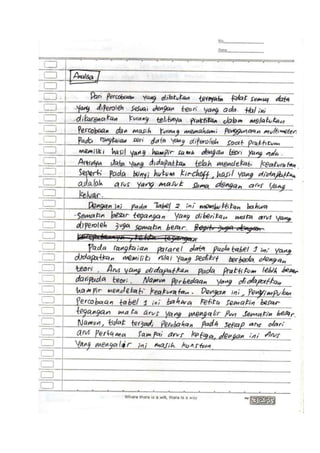 No.
Date.
Analisa
Dari Percobaan yang dilakukan ternyata tidak semua data
yang diperoleh sesuai dengan teori yang ada. Hal ini
dikarenakan kurang telitinya praktikan dalam melakukan
Percobaan dan masih kurang memahami penggunaan multimeter.
Pada rangkaian seri data yang diperoleh saat praktikum
memiliki hasil yang hampir sama dengan teori yang ada
Artinya data yang didapatkan telah mendekati keakuratan
Seperti pada bunyi hukum kirchoff, hasil yang didapatkan
adalah arus yang masuk sama dengan arus yang
keluar.
Dengan ini pada Tabel 2 ini membuktikan bahwa
Semakin besar tegangan yang diberikan maka arus yang
diperoleh juga semakin besar.
Pada rangkaian pararel data pada tabel 1 ini yang
didapatkan memiliki nilai yang sedikit berbeda dengan
teori. Arus yang didapatkan pada praktikum lebih besar
daripada teori. Namun perbedaan yang didapatkan
hampir mendekati keakuratan. Dengan ini, Penyimpulan
Percobaan tabel 1 ini bahwa ketika semakin besar
tegangan maka arus yang mengalir pun semakin besar.
Namun, tidak terjadi perubahan pada setiap arus dari
arus pertama sampai arus ketiga, dengan ini Arus
yang mengalir ini masih konstan.
Where there is a will, there is a way